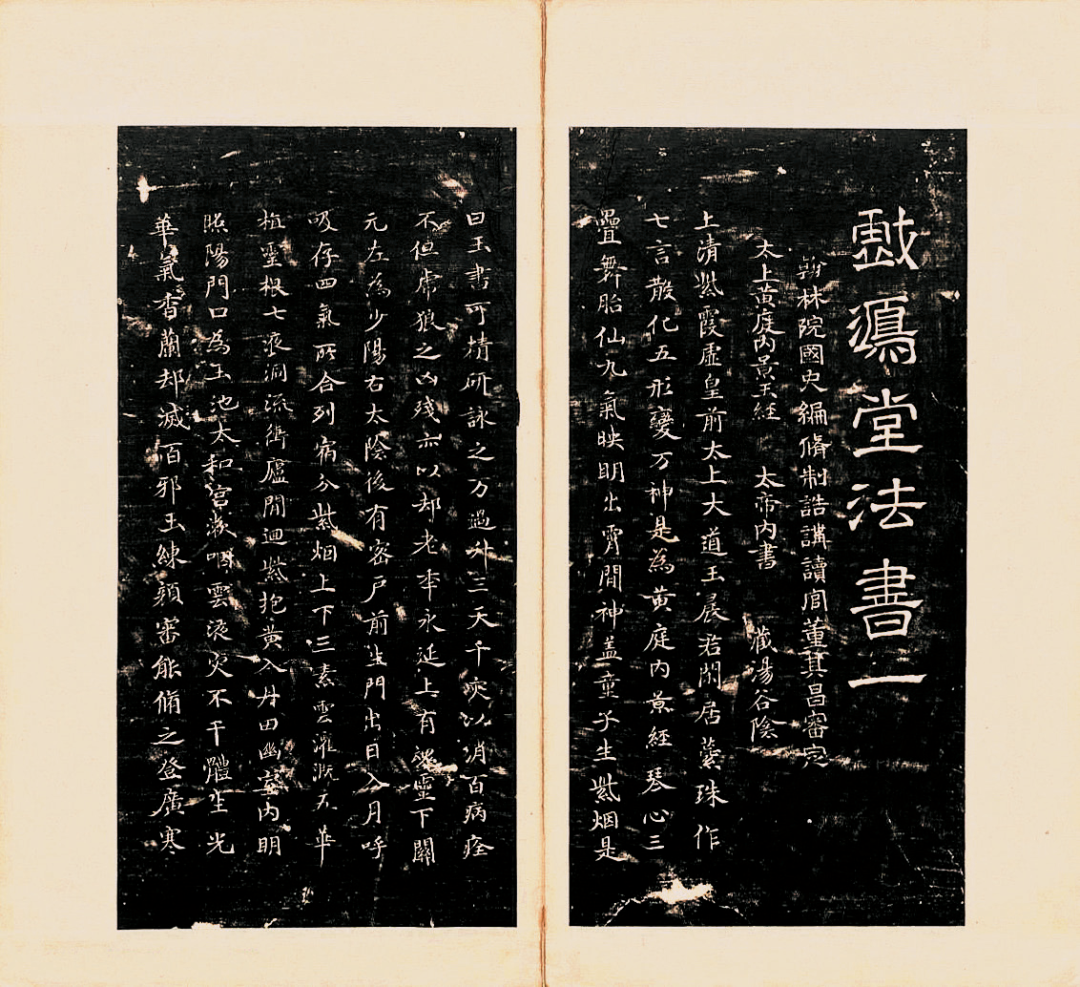 戲鴻堂法書二
翰林院國史編脩制誥講讀官董其昌審定
太上黃庭內景玉經 太帝內書 藏湯谷陰
上清紫霞虛皇前太上大道玉晨君閑居蘂珠作
七言散化五形變万神是為黃庭內景經琴心三
疊舞胎仙九氣映明出霄間神盖童子生紫烟是
曰玉書可精研詠之万過升三天千灾以消百病痊
不但虎狼之凶殘亦以却老年永延上有魂靈下關
元左為少陽右太陰後有密戶前生門出日入月呼
吸存四氣所合列宿分紫烟上下三素雲灌溉五華
植靈根七液洞流衝廬間迴紫抱黃入丹田幽室內明
照陽門口為玉池太和宮漱咽靈液灾不干體生光
華氣香蘭却滅百邪玉練顏審能脩之登廣寒